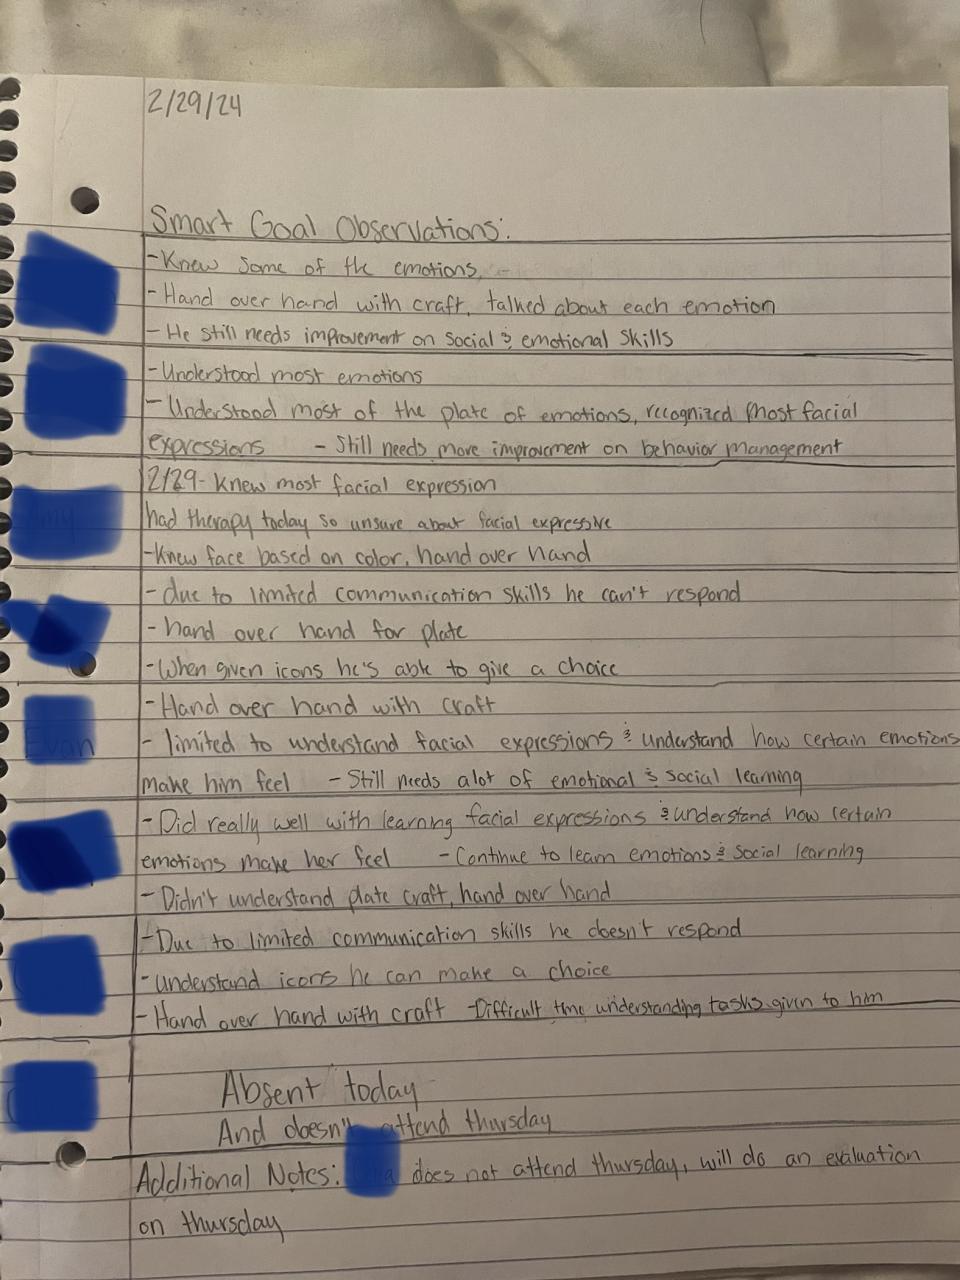 2/29/24
Smart Goal Observations:
- Knew some of the emotions,
- Hand over hand with craft, talked about each emotion
- He still needs improvement on social & emotional skills
- Understood most emotions
- Understood most of the plate of emotions, recognized most facial
expressions - Still needs more improvement on behavior management
2/29- Knew most facial expression
had therapy today so unsure about facial expressive
- Knew face based on color, hand over hand
- due to limited communication skills he can't respond
- hand over hand for plate
- When given icons he's able to give a choice
- Hand over hand with craft
- limited to understand facial expressions & understand how certain emotions
make him feel - Still needs alot of emotional & social learning
- Did really well with learning facial expressions & understand how certain
emotions make her feel - Continue to learn emotions & social learning
- Didn't understand plate craft, hand over hand
- Due to limited communication skills he doesn't respond
- understand icons he can make a choice
- Hand over hand with craft - Difficult time understanding tasks given to him
Absent today
And doesn't attend thursday
Additional Notes: does not attend thursday, will do an evaluation
on thursday